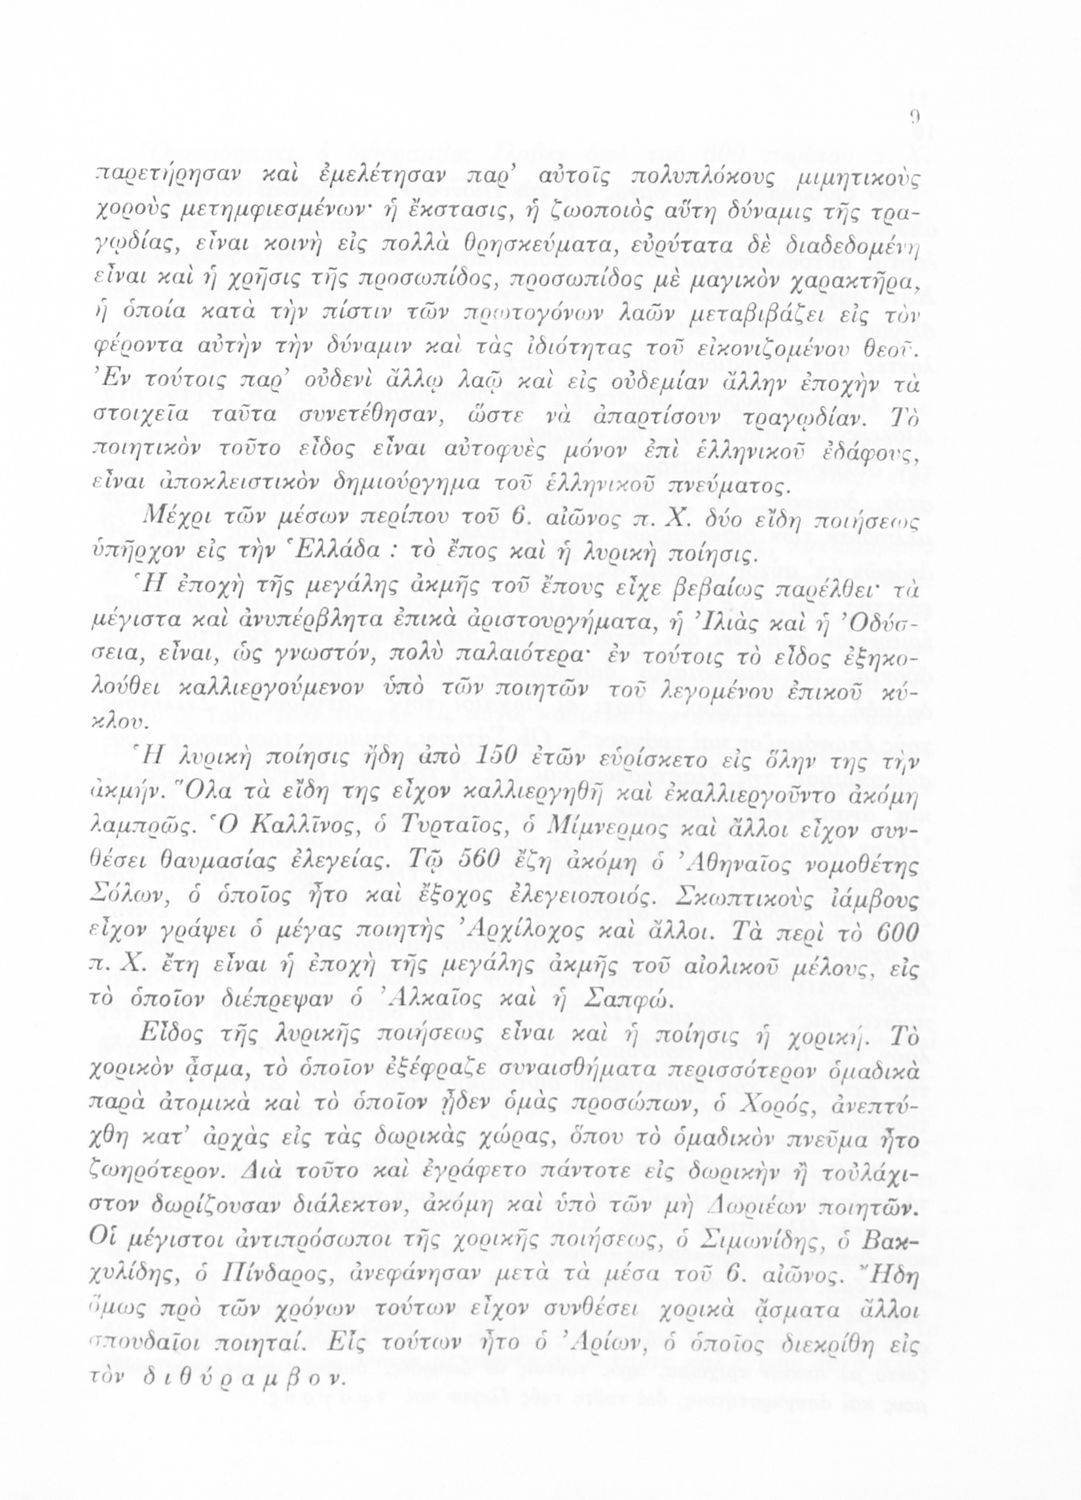 9
παρετήρησαν καὶ ἐμελέτησαν παρ’ αὐτοῖς πολυπλόκους μιμητικοὺς
χοροὺς μετημφιεσμένων· ἡ ἔκστασις, ἡ ζωοποιὸς αὕτη δύναμις τῆς τρα-
γῳδίας, εἶναι κοινὴ εἰς πολλὰ θρησκεύματα, εὐρύτατα δὲ διαδεδομένη
εἶναι καὶ ἡ χρῆσις τῆς προσωπίδος, προσωπίδος μὲ μαγικὸν χαρακτῆρα,
ἡ ὁποία κατὰ τὴν πίστιν τῶν πρωτογόνων λαῶν μεταβιβάζει εἰς τὸν
φέροντα αὐτὴν τὴν δύναμιν καὶ τὰς ἰδιότητας τοῦ εἰκονιζομένου θεοῦ.
Ἐν τούτοις παρ’ οὐδενὶ ἄλλῳ λαῷ καὶ εἰς οὐδεμίαν ἄλλην ἐποχὴν τὰ
στοιχεῖα ταῦτα συνετέθησαν, ὥστε νὰ ἀπαρτίσουν τραγῳδίαν. Τὸ
ποιητικὸν τοῦτο εἶδος εἶναι αὐτοφυὲς μόνον ἐπὶ ἑλληνικοῦ ἐδάφους,
εἶναι ἀποκλειστικὸν δημιούργημα τοῦ ἑλληνικοῦ πνεύματος.
Μέχρι τῶν μέσων περίπου τοῦ 6. αἰῶνος π. Χ. δύο εἴδη ποιήσεως
ὑπῆρχον εἰς τὴν Ἑλλάδα : τὸ ἔπος καὶ ἡ λυρικὴ ποίησις.
Ἡ ἐποχὴ τῆς μεγάλης ἀκμῆς τοῦ ἔπους εἶχε βεβαίως παρέλθει· τὰ
μέγιστα καὶ ἀνυπέρβλητα ἐπικὰ ἀριστουργήματα, ἡ Ἰλιὰς καὶ ἡ Ὀδύσ-
σεια, εἶναι, ὡς γνωστόν, πολὺ παλαιότερα· ἐν τούτοις τὸ εἶδος ἐξηκο-
λούθει καλλιεργούμενον ὑπὸ τῶν ποιητῶν τοῦ λεγομένου ἐπικοῦ κύ-
κλου.
Ἡ λυρικὴ ποίησις ἤδη ἀπὸ 150 ἐτῶν εὑρίσκετο εἰς ὅλην της τὴν
ἀκμήν. Ὅλα τὰ εἴδη της εἶχον καλλιεργηθῆ καὶ ἐκαλλιεργοῦντο ἀκόμη
λαμπρῶς. Ὁ Καλλῖνος, ὁ Τυρταῖος, ὁ Μίμνερμος καὶ ἄλλοι εἶχον συν-
θέσει θαυμασίας ἐλεγείας. Τῷ 560 ἔζη ἀκόμη ὁ Ἀθηναῖος νομοθέτης
Σόλων, ὁ ὁποῖος ἦτο καὶ ἔξοχος ἐλεγειοποιός. Σκωπτικοὺς ἰάμβους
εἶχον γράψει ὁ μέγας ποιητὴς Ἀρχίλοχος καὶ ἄλλοι. Τὰ περὶ τὸ 600
π. Χ. ἔτη εἶναι ἡ ἐποχὴ τῆς μεγάλης ἀκμῆς τοῦ αἰολικοῦ μέλους, εἰς
τὸ ὁποῖον διέπρεψαν ὁ Ἀλκαῖος καὶ ἡ Σαπφώ.
Εἶδος τῆς λυρικῆς ποιήσεως εἶναι καὶ ἡ ποίησις ἡ χορική. Τὸ
χορικὸν ᾆσμα, τὸ ὁποῖον ἐξέφραζε συναισθήματα περισσότερον ὁμαδικὰ
παρὰ ἀτομικὰ καὶ τὸ ὁποῖον ᾖδεν ὁμὰς προσώπων, ὁ Χορός, ἀνεπτύ-
χθη κατ’ ἀρχὰς εἰς τὰς δωρικὰς χώρας, ὅπου τὸ ὁμαδικὸν πνεῦμα ἦτο
ζωηρότερον. Διὰ τοῦτο καὶ ἐγράφετο πάντοτε εἰς δωρικὴν ἢ τοὐλάχι-
στον δωρίζουσαν διάλεκτον, ἀκόμη καὶ ὑπὸ τῶν μὴ Δωριέων ποιητῶν.
Οἱ μέγιστοι ἀντιπρόσωποι τῆς χορικῆς ποιήσεως, ὁ Σιμωνίδης, ὁ Βακ-
χυλίδης, ὁ Πίνδαρος, ἀνεφάνησαν μετὰ τὰ μέσα τοῦ 6. αἰῶνος. Ἤδη
ὅμως πρὸ τῶν χρόνων τούτων εἶχον συνθέσει χορικὰ ᾄσματα ἄλλοι
σπουδαῖοι ποιηταί. Εἷς τούτων ἦτο ὁ Ἀρίων, ὁ ὁποῖος διεκρίθη εἰς
τὸν διθύραμβον.